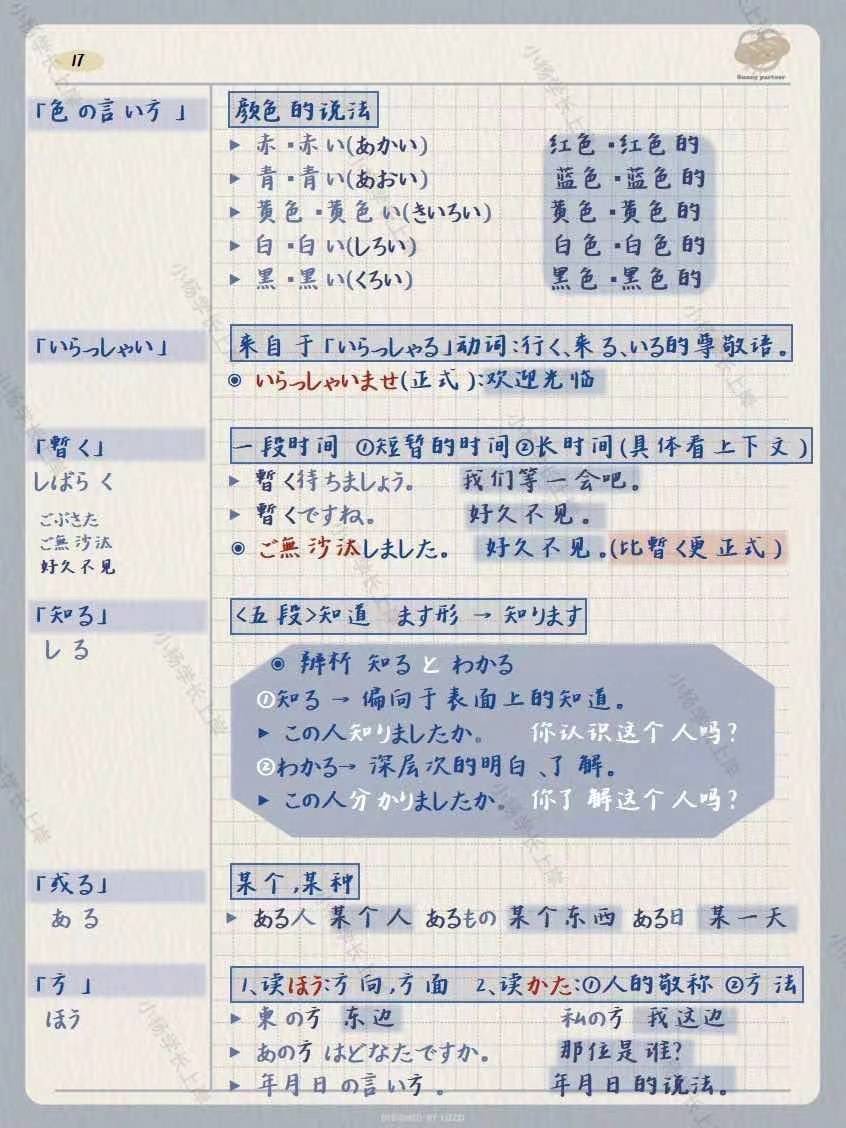 17
Sunny partner
「色の言い方」 颜色的说法
▶ 赤・赤い(あかい) 红色・红色的
▶ 青・青い(あおい) 蓝色・蓝色的
▶ 黄色・黄色い(きいろい) 黄色・黄色的
▶ 白・白い(しろい) 白色・白色的
▶ 黒・黒い(くろい) 黑色・黑色的
「いらっしゃい」 来自于「いらっしゃる」动词:行く、来る、いる的尊敬语。
◉ いらっしゃいませ(正式):欢迎光临
「暫く」 一段时间 ①短暂的时间②长时间(具体看上下文)
しばらく ▶ 暫く待ちましょう。 我们等一会吧。
▶ 暫くですね。 好久不见。
ごぶさた
ご無沙汰 ◉ ご無沙汰しました。 好久不见。(比暫く更正式)
好久不见
「知る」 <五段>知道 ます形 → 知ります
しる
◉ 辨析 知る と わかる
①知る → 偏向于表面上的知道。
▶ この人知りましたか。 你认识这个人吗?
②わかる→ 深层次的明白、了解。
▶ この人分かりましたか。 你了解这个人吗?
「或る」 某个,某种
ある ▶ ある人 某个人 あるもの 某个东西 ある日 某一天
「方」 1、读ほう:方向,方面 2、读かた:①人的敬称 ②方法
ほう ▶ 東の方 东边 私の方 我这边
▶ あの方はどなたですか。 那位是谁?
▶ 年月日の言い方。 年月日的说法。
DESIGNED BY LIZZI
小杨学长上岸